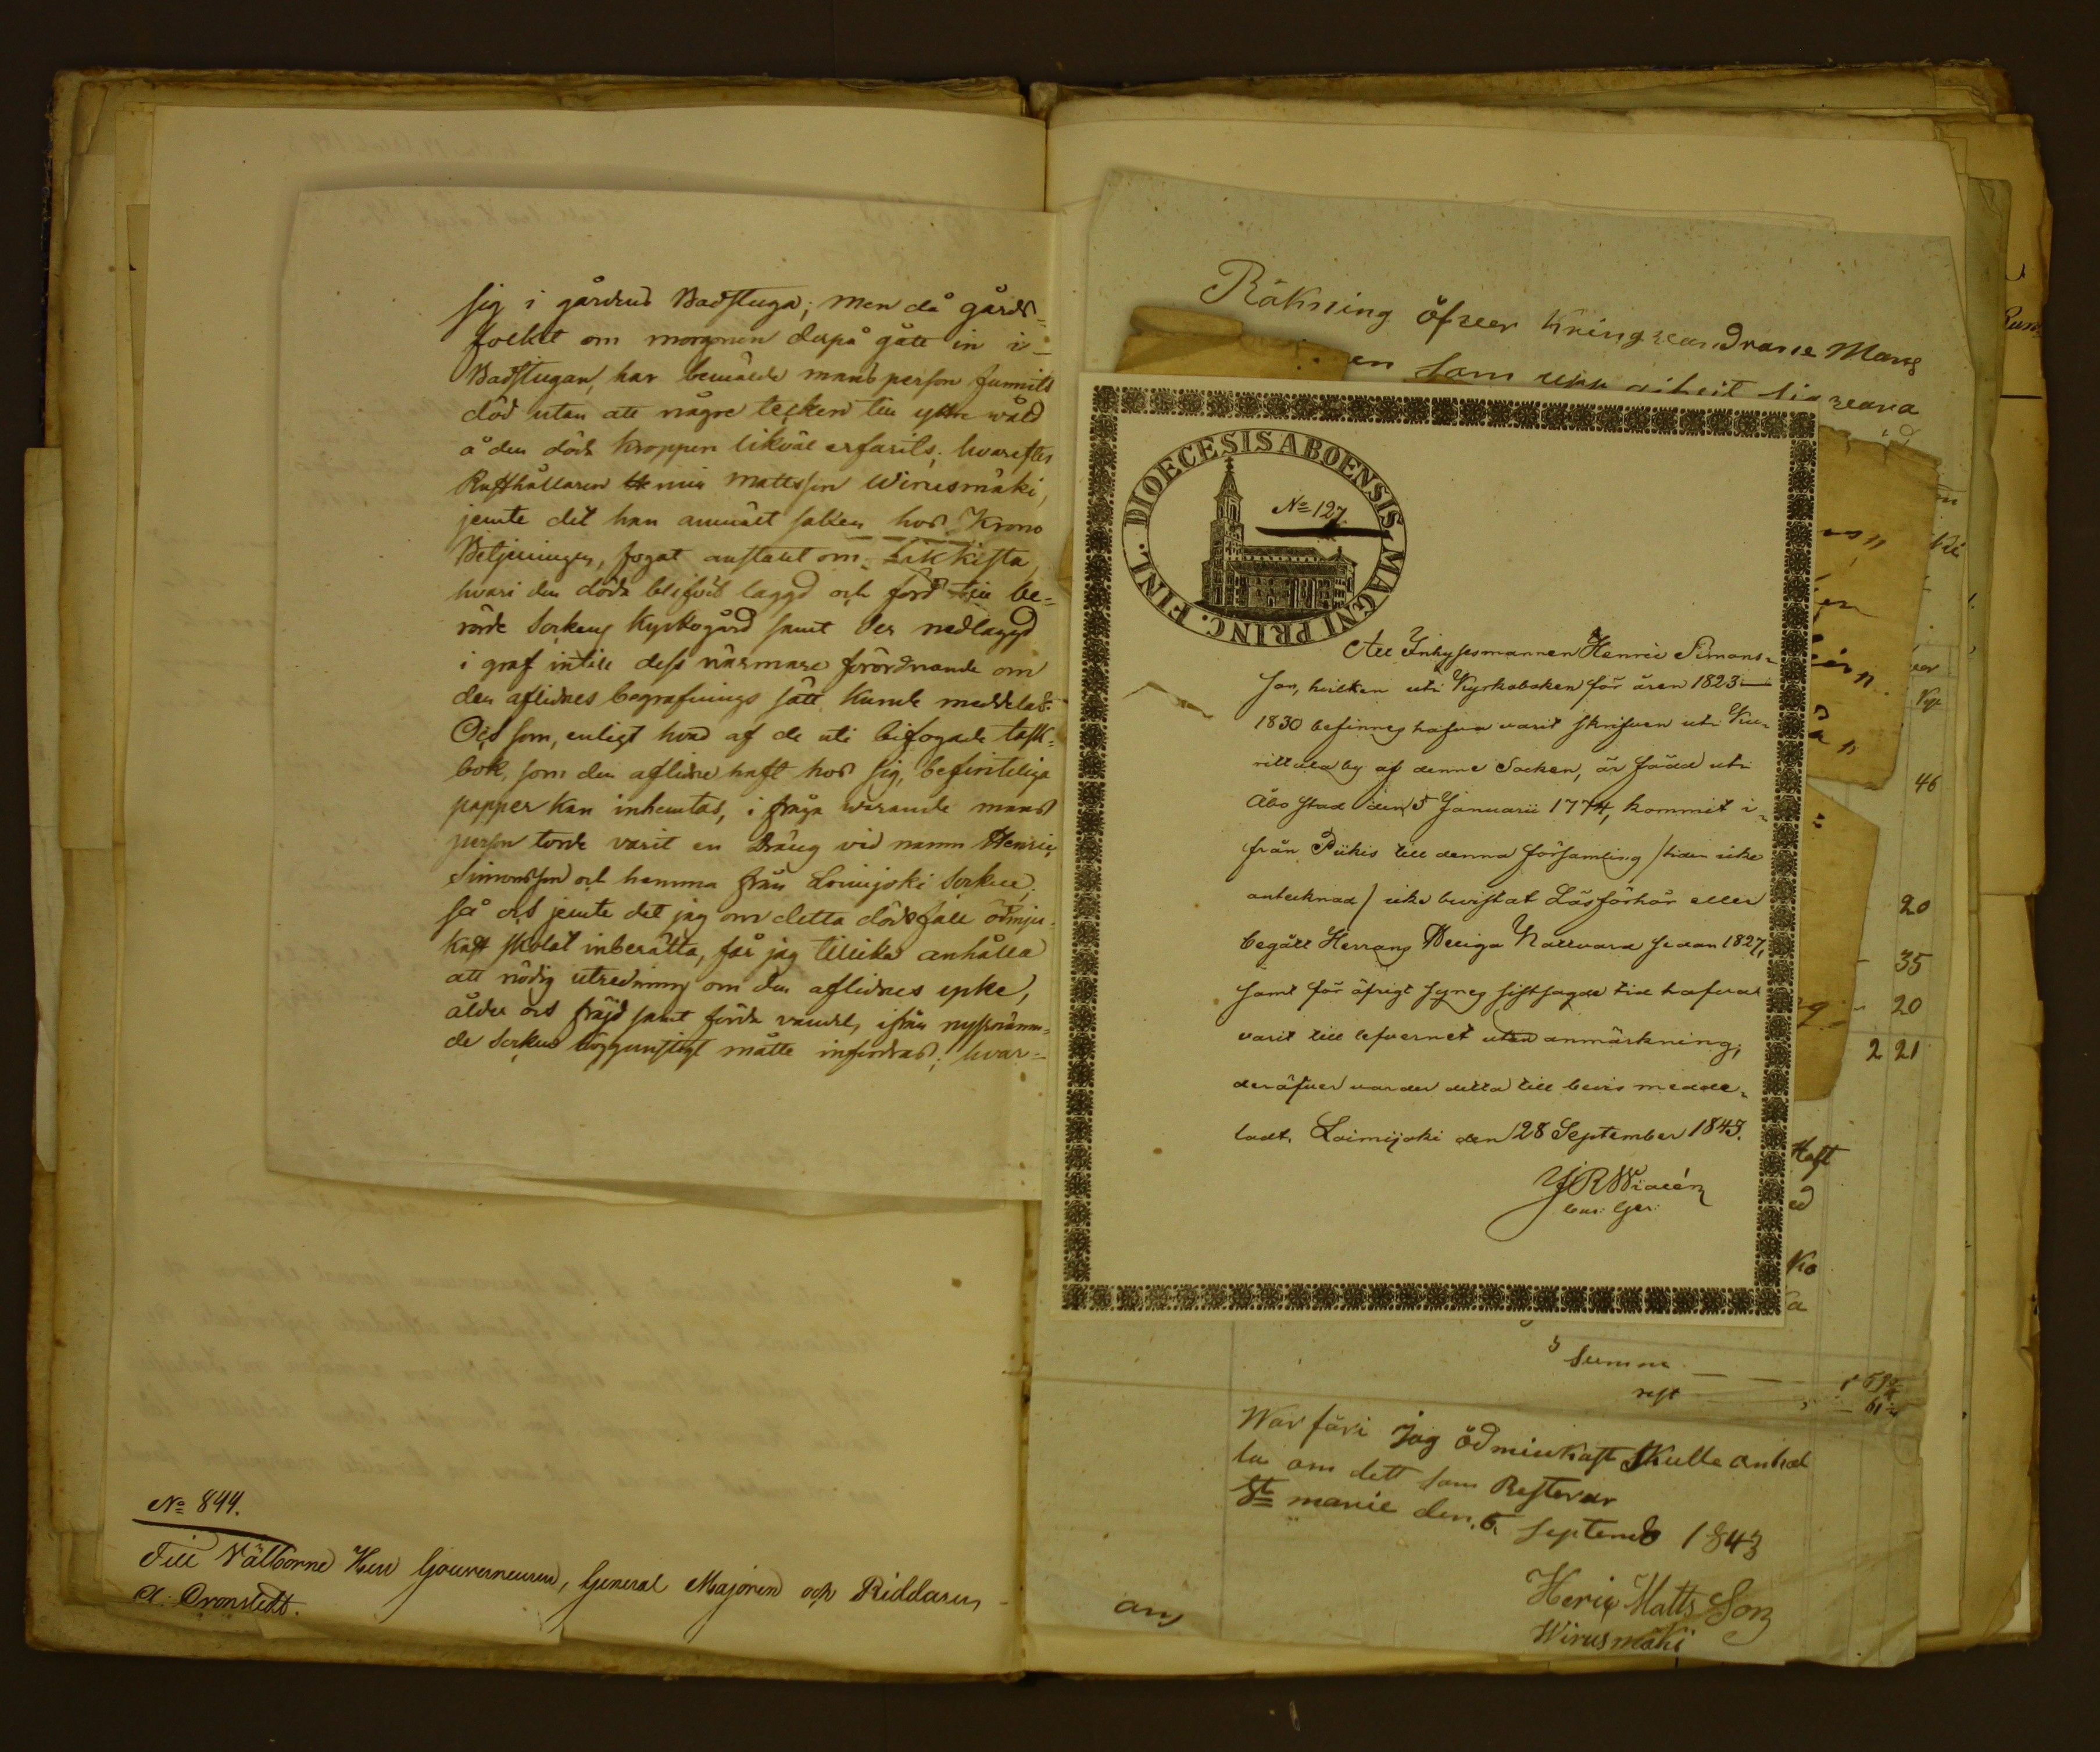 sig i gårdens Badstuga; men då gårds-
folket om morgonen derpå gått in i
Badstugan, har bemälde mansperson funnits
död utan att några tecken till yttre våld
å den döda kroppen likväl erfarits; hvarefter
Rusthållaren Henric Mattsson Wirusmäki,
jemte det han anmält saken hos Krono
Betjeningen, fogat anstalt om Likkista,
hvari den döda blifvit laggd och förd till be-
rörde Sockens Kyrkogård samt der nedlaggd
i graf intill dess närmare förordnande om
den aflidnes begrafnings sätt kunde meddelas.
Och som, enligt hvad af de uti bifogade task-
bok, som den aflidne haft hos sig, befinteliga
papper kan inhemtas, i fråga warande mans
person torde varit en Dräng vid namn Henric
Simonsson och hemma från Loimjoki Socken;
så och jemte det jag om detta dödsfall ödmju-
kast skolat inberätta, får jag tillika anhålla
att nödig utredning om den aflidnes yrke,
ålder och fräjd samt förda vandel, ifrån nyssnämn-
de Socken höggunstigt måtte infordras; hvar-
No 844.
Till Välborne Herr Gouverneuren, General Majoren och Riddaren
A. Cronstedt.
Räkning öfver kringvandrane Mans
en som
DIOECESIS ABOENSIS MAGNI PRINC. FINL.
No 127.
Att Inhysesmannen Henric Simons-
son, hvilken uti Kyrkoboken för åren 1823—
1830 befinnes hafva varit skrifven uti
by af denne Socken, är född uti
Åbo stad den 5 Januarii 1774, kommit i-
från Piikis till denna församling /tiden icke
antecknad/ icke bevistat Läsförhör eller
begått Herrans Heliga Nattvard sedan 1827,
samt för öfrigt synes sistsagde tid hafva
varit till lefvernet utan anmärkning;
deröfver varder detta till bevis medde-
ladt. Loimijoki den 28 September 1843.
46
20
35
20
2 21
Haft
ed
Ko
a
Summa
rest
War föri jag ödmiukast skulle anhål
la om dett som Resterar
St marie den 6 Septemb 1843
Heric Matts Son
Wirusmäki